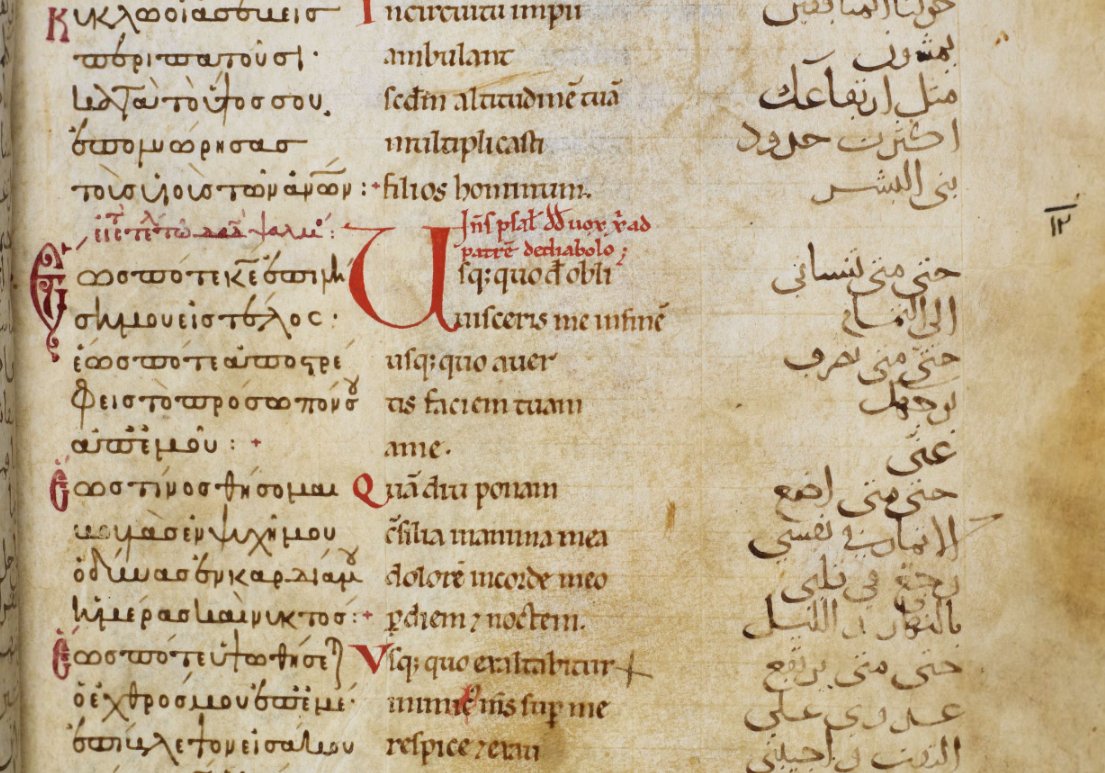 Κυκλω οι ασεβεισ
περιπατοῦσι·
κατὰ τὸ ὕψοσ σου,
ἐπολυώρησασ
τοὺσ υἱοὺσ τῶν ἀν̅ω̅ν :+
Ἕωσ πότε κ̅ε̅ ἐπιλή
ση μου εἰσ τέλοσ·
ἕωσ πότε ἀποστρέ
φεισ τὸ πρόσωπόν σου
ἀπ' ἐμοῦ : +
Ἕωσ τίνοσ θήσομαι
βουλὰσ ἐν ψυχῆ μου
ὀδύνασ ἐν καρδία μου
ἡμέρασ καὶ νυκτόσ :+
Ἕωσ πότε ὑψωθήσεται
ὁ ἐχθρόσ μου ἐπ' ἐμέ·
ἐπίβλεψον εἰσάκου
Incircuitu impii
ambulant
scd̄m altitudinē tuā
multiplicasti
filios hominum.
uox x̄ ad
patrē de diabolo
Usq; quo dn̄e obli
uisceris me infinē
usq; quo auer
tis faciem tuam
a me.
Quādiu ponam
cōsilia in anima mea
dolorē incorde meo
ꝑ diem ⁊ noctem.
Vsq; quo exaltabitur
inimic' m̄s suꝑ me
respice ⁊ exau
حولنا المنافقين
يمشون
مثل ارتفاعك
اكثرت حدود
بنى البشر
١٢
حتى متى تنسانى
الى التمام
حتى متى تصرف
وجهك
عنى
حتى متى اضع
فى نفسى
وجع فى قلبى
بالنهار و الليل
حتى متى يرتفع
عدوى على
التفت و اجيبنى